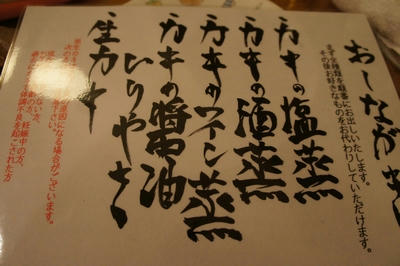 おしながき
まず全種類を順番にお出しいたします。
その後お好きなものをお代わりしていただけます。
カキの塩蒸
カキの酒蒸
カキのワイン蒸
カキの醤油
いりやき
生カキ
原因になる場合がございます。
妊娠中の方、
体調不良を起こされた方